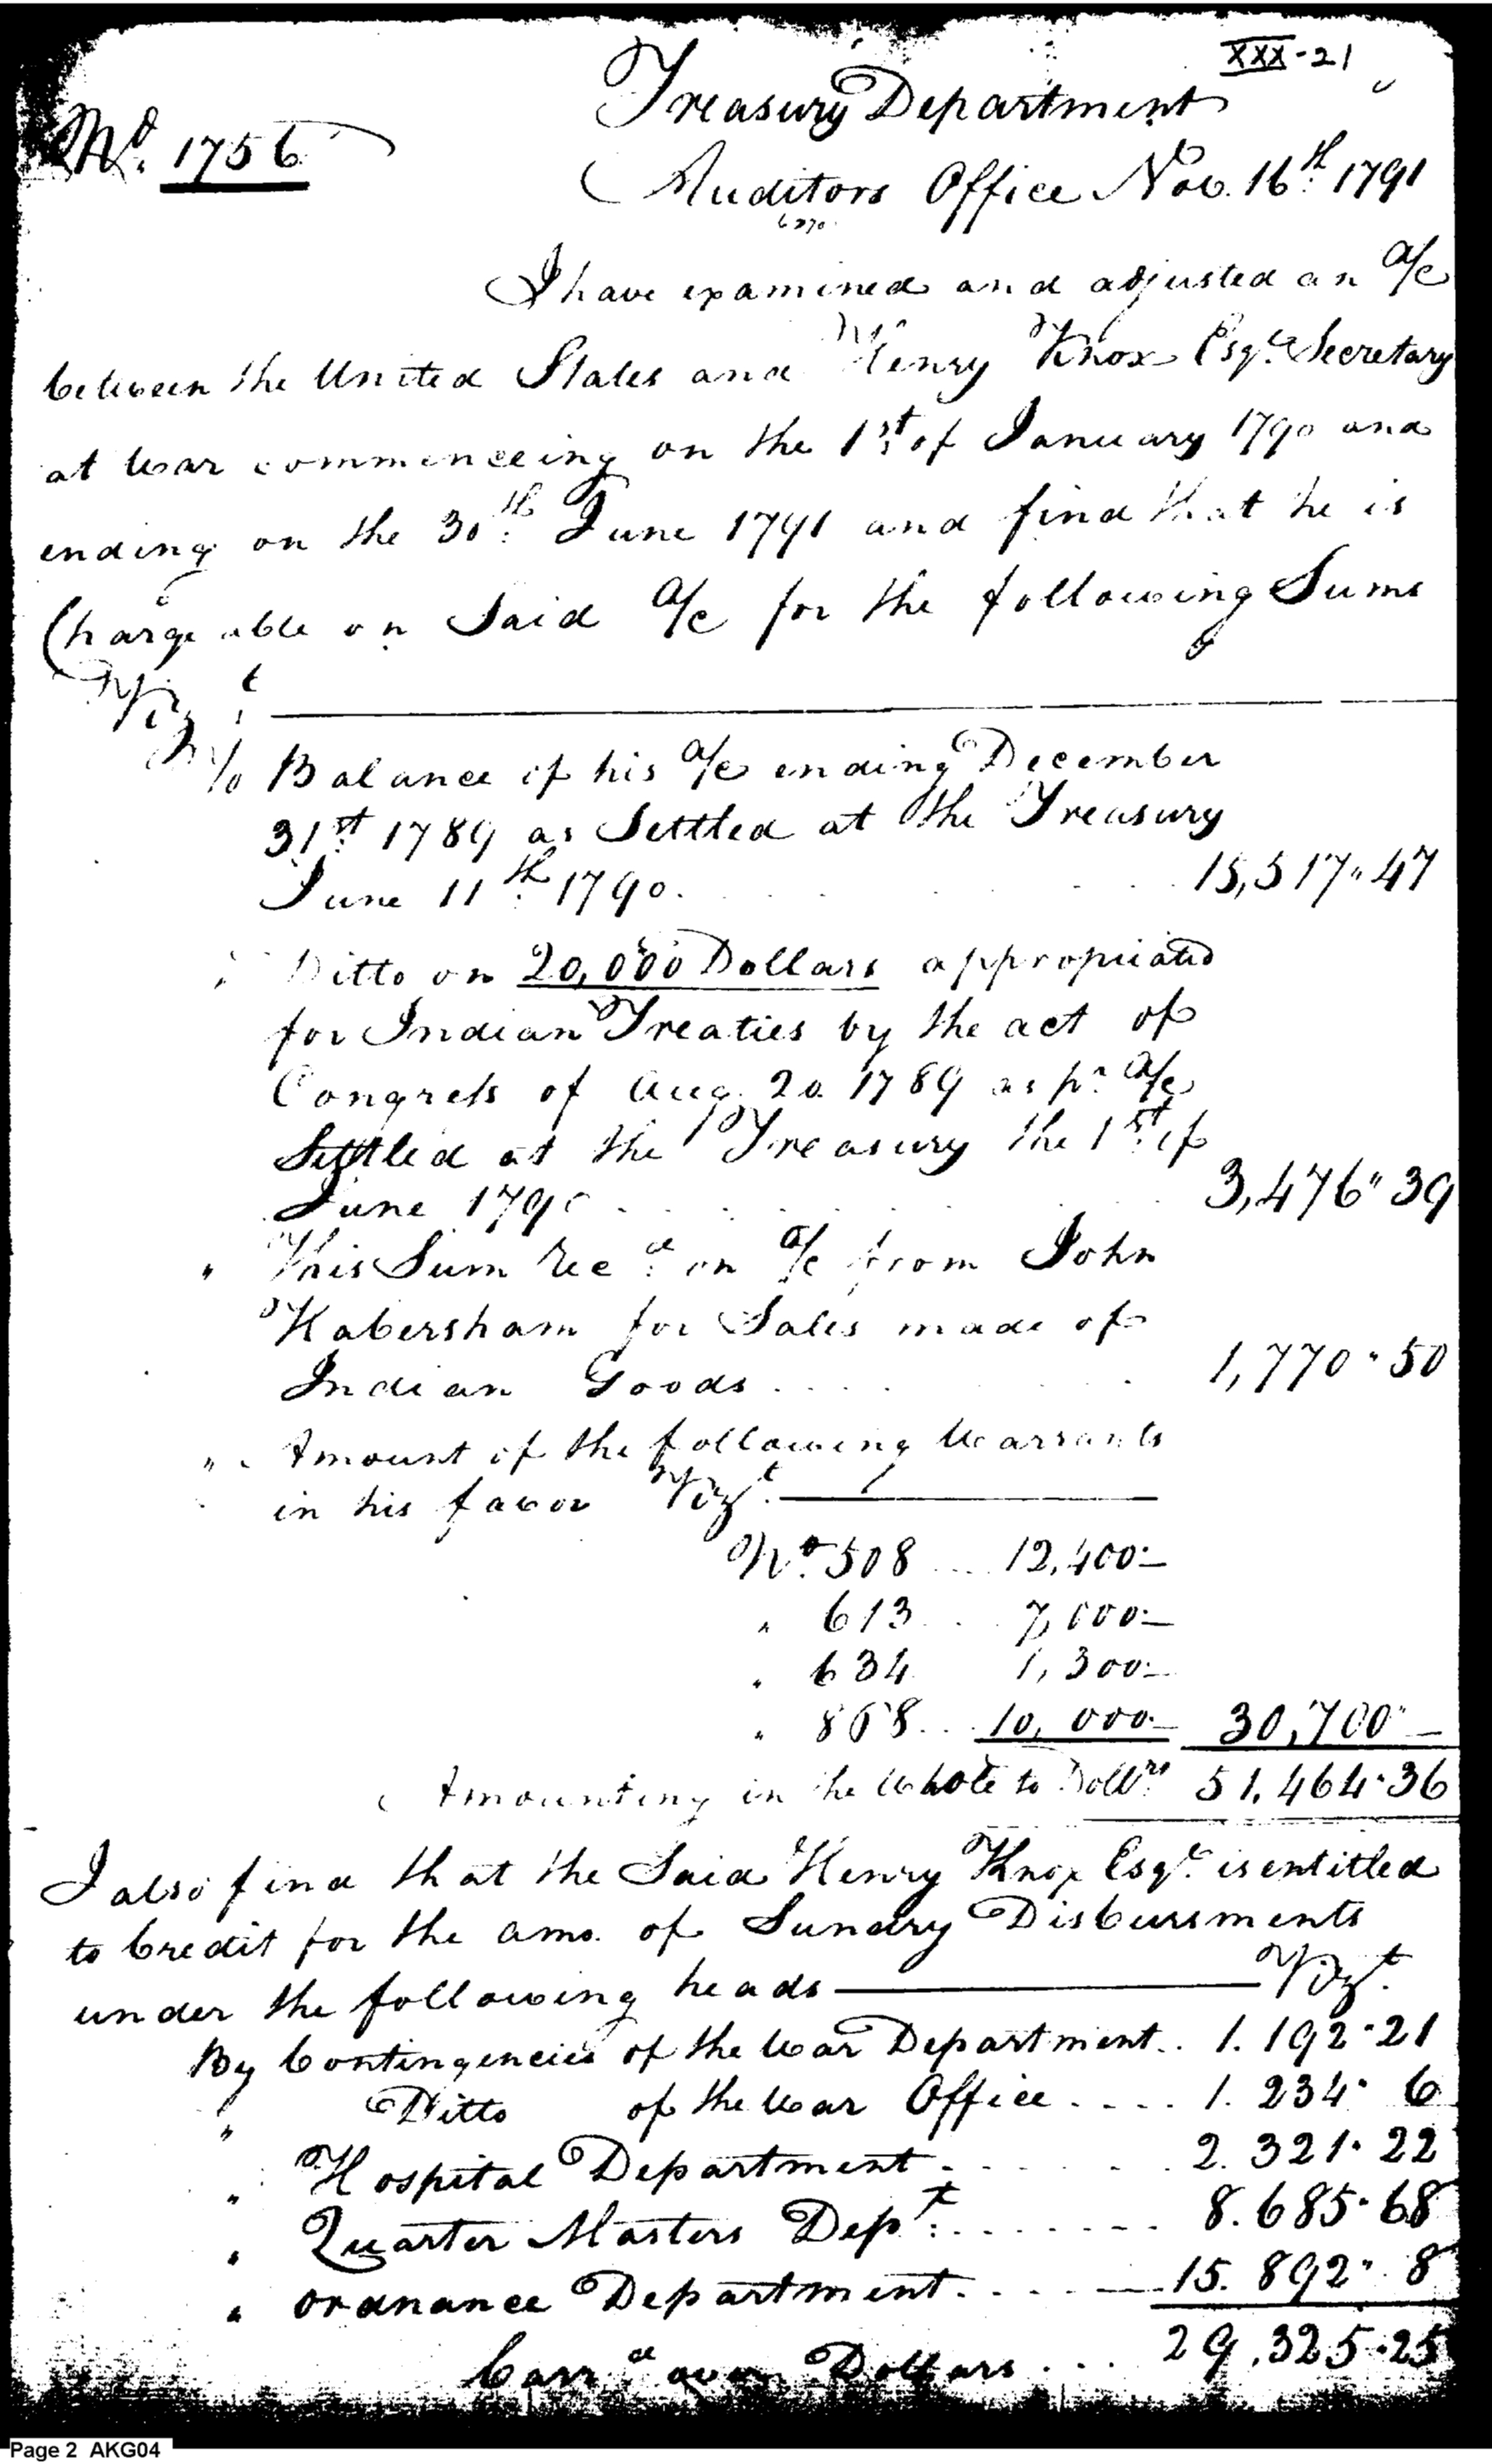 XXX-21
Treasury Department
No. 1756
Auditors Office Nov. 16th 1791
6270
I have examined and adjusted an a/c
between the United States and Henry Knox Esqr. Secretary
at War commenceing on the 1st of January 1790 and
ending on the 30th June 1791 and find that he is
Chargeable on Said a/c for the following Sums
Vizt
To Balance of his a/c ending December
31st 1789 as Settled at the Treasury
June 11th 1790. 15,517"47
" Ditto on 20,000 Dollars appropriated
for Indian Treaties by the act of
Congress of Aug. 20 1789 as pr. a/c
Settled at the Treasury the 1st of
June 1790 3,476"39
" This Sum Recd. on a/c from John
Habersham for Sales made of
Indian Goods 1,770"50
" Amount of the following Warrants
in his favor Vizt.
No. 508 12,400"—
" 613 7,000"—
" 634 1,300"—
" 868 10,000"— 30,700"—
Amounting in the Whole to Dollrs 51,464"36
I also find that the Said Henry Knox Esqr. is entitled
to Credit for the amo. of Sundry Disbursments
under the following heads Vizt.
By Contingencies of the War Department 1.192"21
" Ditto of the War Office 1.234" 6
" Hospital Department 2.321"22
" Quarter Masters Dept: 8.685"68
" Ordnance Department 15.892" 8
Carrd over Dollars 29.325"25
Page 2 AKG04